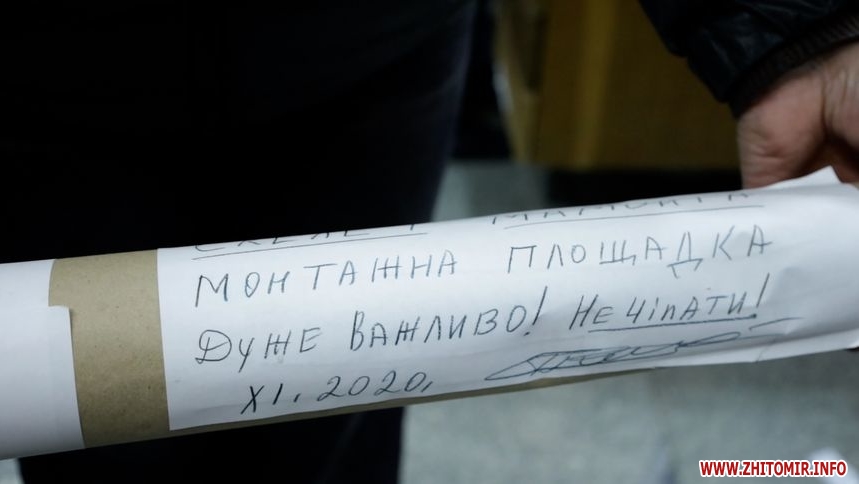 СКЕЛЕТ МАМОНТА
МОНТАЖНА ПЛОЩАДКА
ДУЖЕ ВАЖЛИВО! НЕ ЧІПАТИ!
XI. 2020.
WWW.ZHITOMIR.INFO